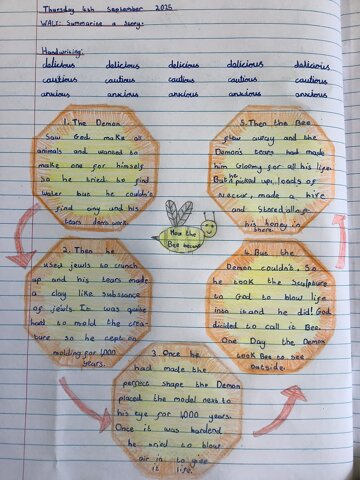 Thursday 4th September 2025
WALT: Summarise a story.
Handwriting:
delicious delicious delicious delicious delicious
cautious cautious cautious cautious cautious
anxious anxious anxious anxious anxious
1. The Demon
saw God make all
animals and wanted to
make one for himself
so he tried to find
water but he couldn't
find any and his
tears didn't work.
2. Then he
used jewls to crunch
up and his tears made
a clay like substance
of jewls. It was quite
hard to mold the crea-
ture so he kept on
molding for 1,000
years.
3. Once he
had made the
perfect shape the Demon
placed the model next to
his eye for 1,000 years.
Once it was hardend
he tried to blow
air in to give
it life.
4. But the
Demon couldn't. So
he took the sculpture
to God to blow life
into it and he did! God
dicided to call it Bee.
One Day the Demon
took Bee to see
outside.
5. Then the Bee
flew away and the
Demon's tears had made
him Gloomy for all his life.
But he picked up loads of
Nectur, made a hive
and Stored all
his honey in
there.
How the
Bee became